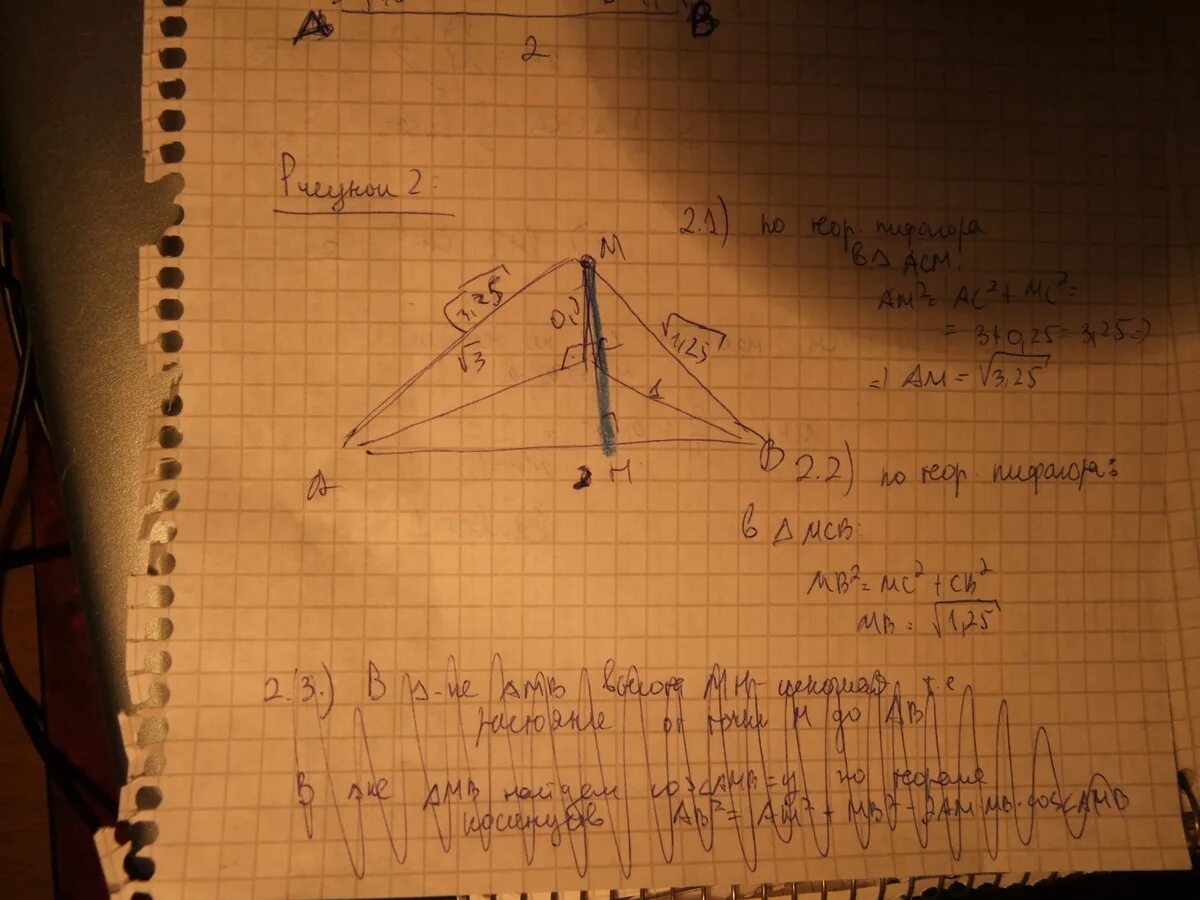 A B
2
Рисунок 2:
M
√3,25
0,5
√3
√1,25
C
1
A
2 H
B
2.1) по теор. пифагора
в Δ ACM:
AM² = AC² + MC² =
= 3 + 0,25 = 3,25 =>
=> AM = √3,25
2.2) по теор. пифагора:
в Δ MCB:
MB² = MC² + CB²
MB = √1,25
2.3.) В Δ-ке AMB высота MH - искомая т.е
расстояние от точки M до AB
В Δке AMB найдем cos<AMB = y по теореме
косинусов AB² = AM² + MB² - 2AM MB · cos<AMB